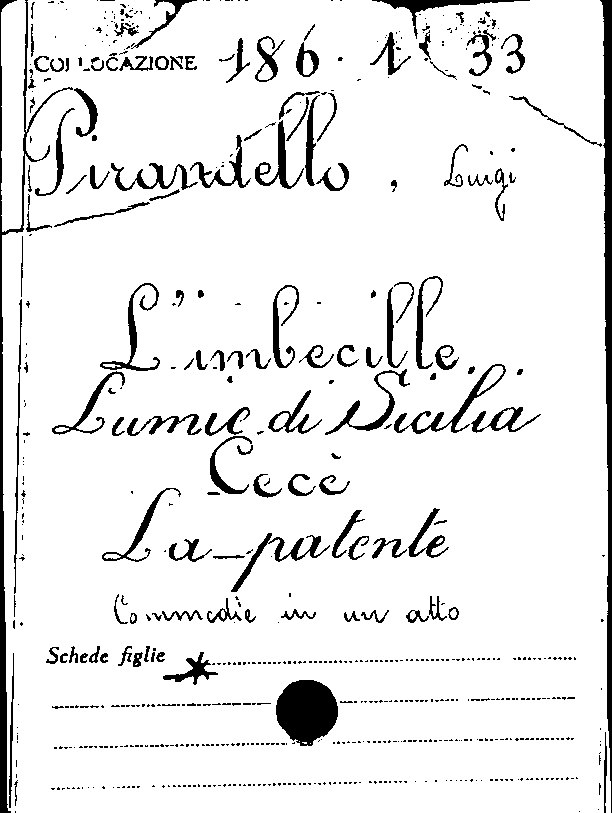 COLLOCAZIONE 186. 1 33
Pirandello, Luigi
L'imbecille.
Lumie di Sicilia
Cecè
La patente
Commedie in un atto
Schede figlie *